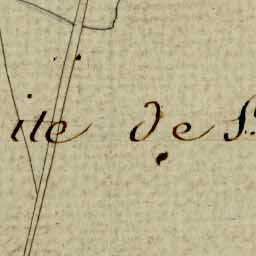 ite de S.